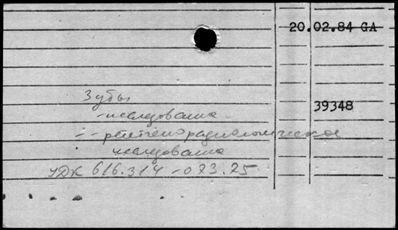 20.02.84 GA
Зубы
- исследование
39348
- - рентгенорадиологическое
исследование
УДК 616.314-073.75